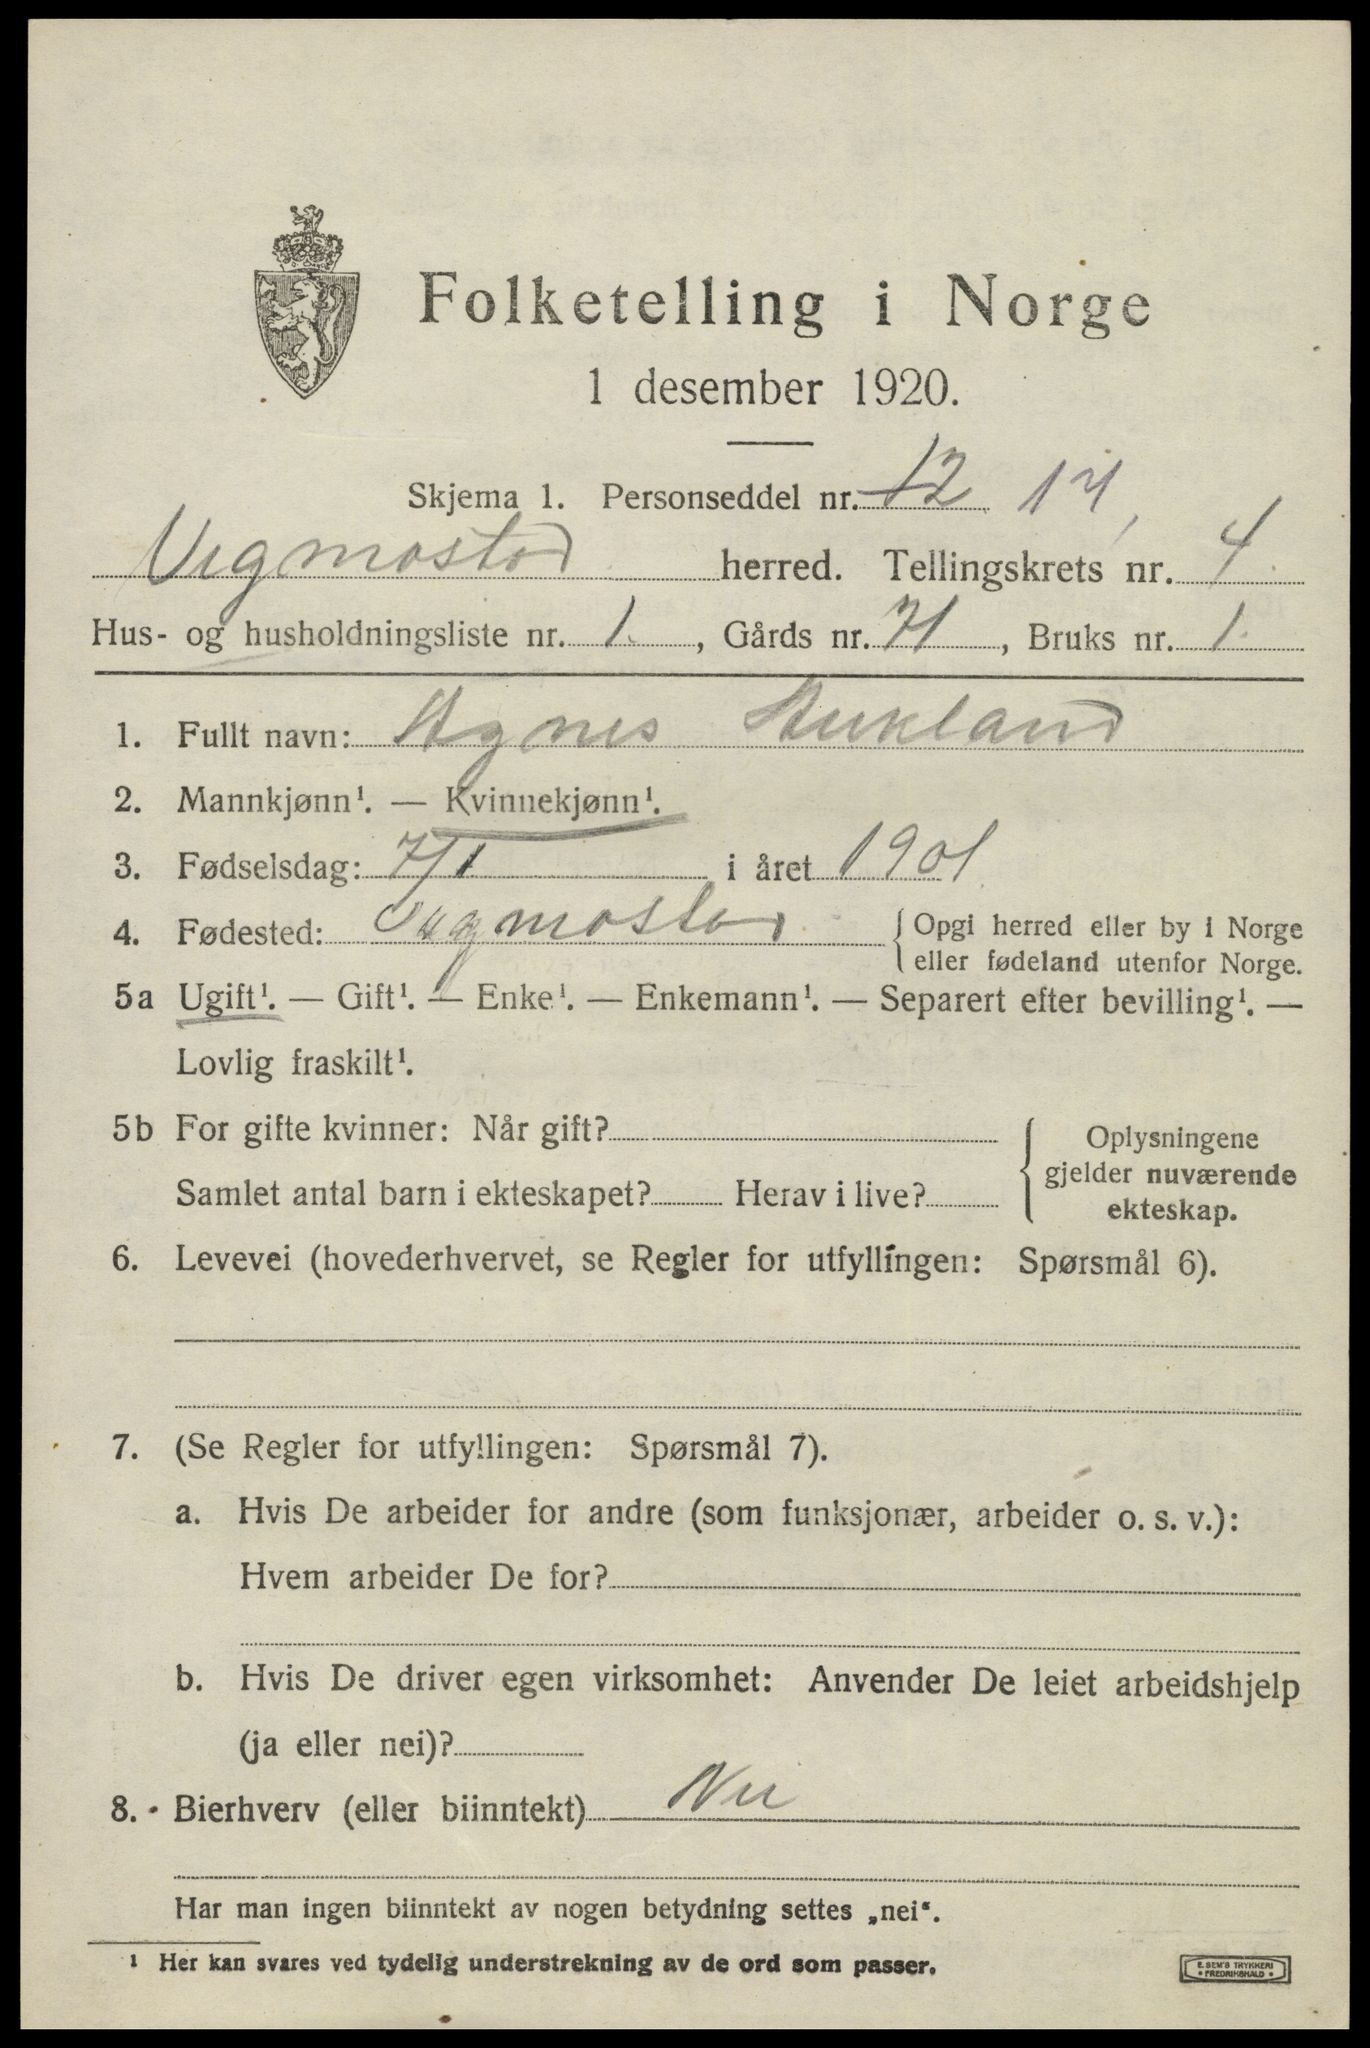 Folketelling i Norge
1 desember 1920.
Skjema 1. Personseddel nr. 12 14,
Vegmostad herred. Tellingskrets nr. 4
Hus- og husholdningsliste nr. 1. , Gårds nr. 71 , Bruks nr. 1.
1. Fullt navn: Agnes Aukland
2. Mannkjønn¹. — Kvinnekjønn¹.
3. Fødselsdag: 7/1 i året 1901
4. Fødested: Vegmostad { Opgi herred eller by i Norge
eller fødeland utenfor Norge.
5a Ugift¹. — Gift¹. — Enke¹. — Enkemann¹. — Separert efter bevilling¹. —
Lovlig fraskilt¹.
5b For gifte kvinner: Når gift?
Samlet antal barn i ekteskapet? Herav i live?
{ Oplysningene
gjelder nuværende
ekteskap.
6. Levevei (hovederhvervet, se Regler for utfyllingen: Spørsmål 6).
7. (Se Regler for utfyllingen: Spørsmål 7).
a. Hvis De arbeider for andre (som funksjonær, arbeider o. s. v.):
Hvem arbeider De for?
b. Hvis De driver egen virksomhet: Anvender De leiet arbeidshjelp
(ja eller nei)?
8. Bierhverv (eller biinntekt) Nei
Har man ingen biinntekt av nogen betydning settes „nei“.
¹ Her kan svares ved tydelig understrekning av de ord som passer.
E. SEM'S TRYKKERI
• FREDRIKSHALD •